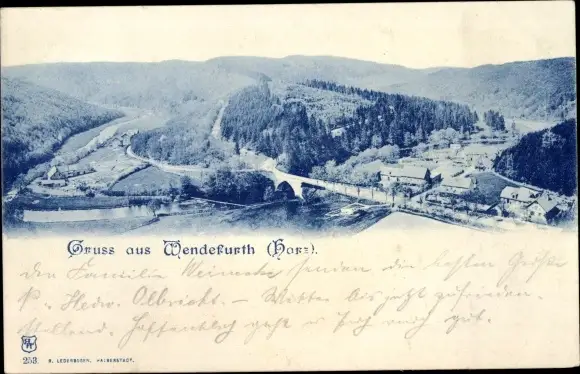 Gruss aus Wendefurth (Harz).
Der Familie Weinecke senden die besten Grüße
Hedw. Olbricht. — Wetter bis jetzt zufrieden-
stellend. Hoffentlich geht es Euch auch gut.
253. R. LEDERBOGEN, HALBERSTADT.